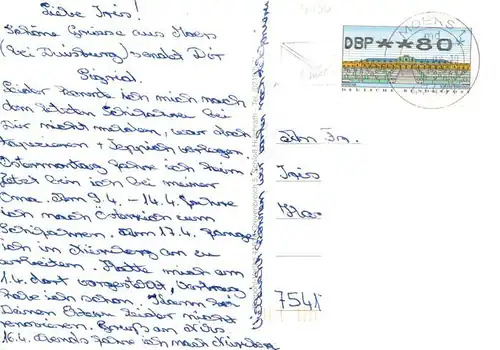 Liebe Iris!
Schöne Grüsse aus Moers
(bei Duisburg) sendet Dir
Sigrid.
Leider konnte ich mich nach
dem letzten Skifahren bei
Dir nicht melden, war doch
tapezieren + Teppich verlegen.
Ostermontag fahre ich heim
Jetzt bin ich bei meiner
Oma. Am 9.4. - 14.4. fahre
ich nach Österreich zum
Skifahren. Am 17.4. fange
ich in Nürnberg an zu
arbeiten. Hatte mich am
1.4. dort vorgestellt, Vertrag
habe ich schon. Kann bei
Deinen Eltern leider nicht
renovieren. Gruß an
16.4. Abends fahre ich nach Nürnberg
vielleicht können wir
MOERS
DBP**80
DEUTSCHE BUNDESPOST
An Fr.
Iris
Ha
7541